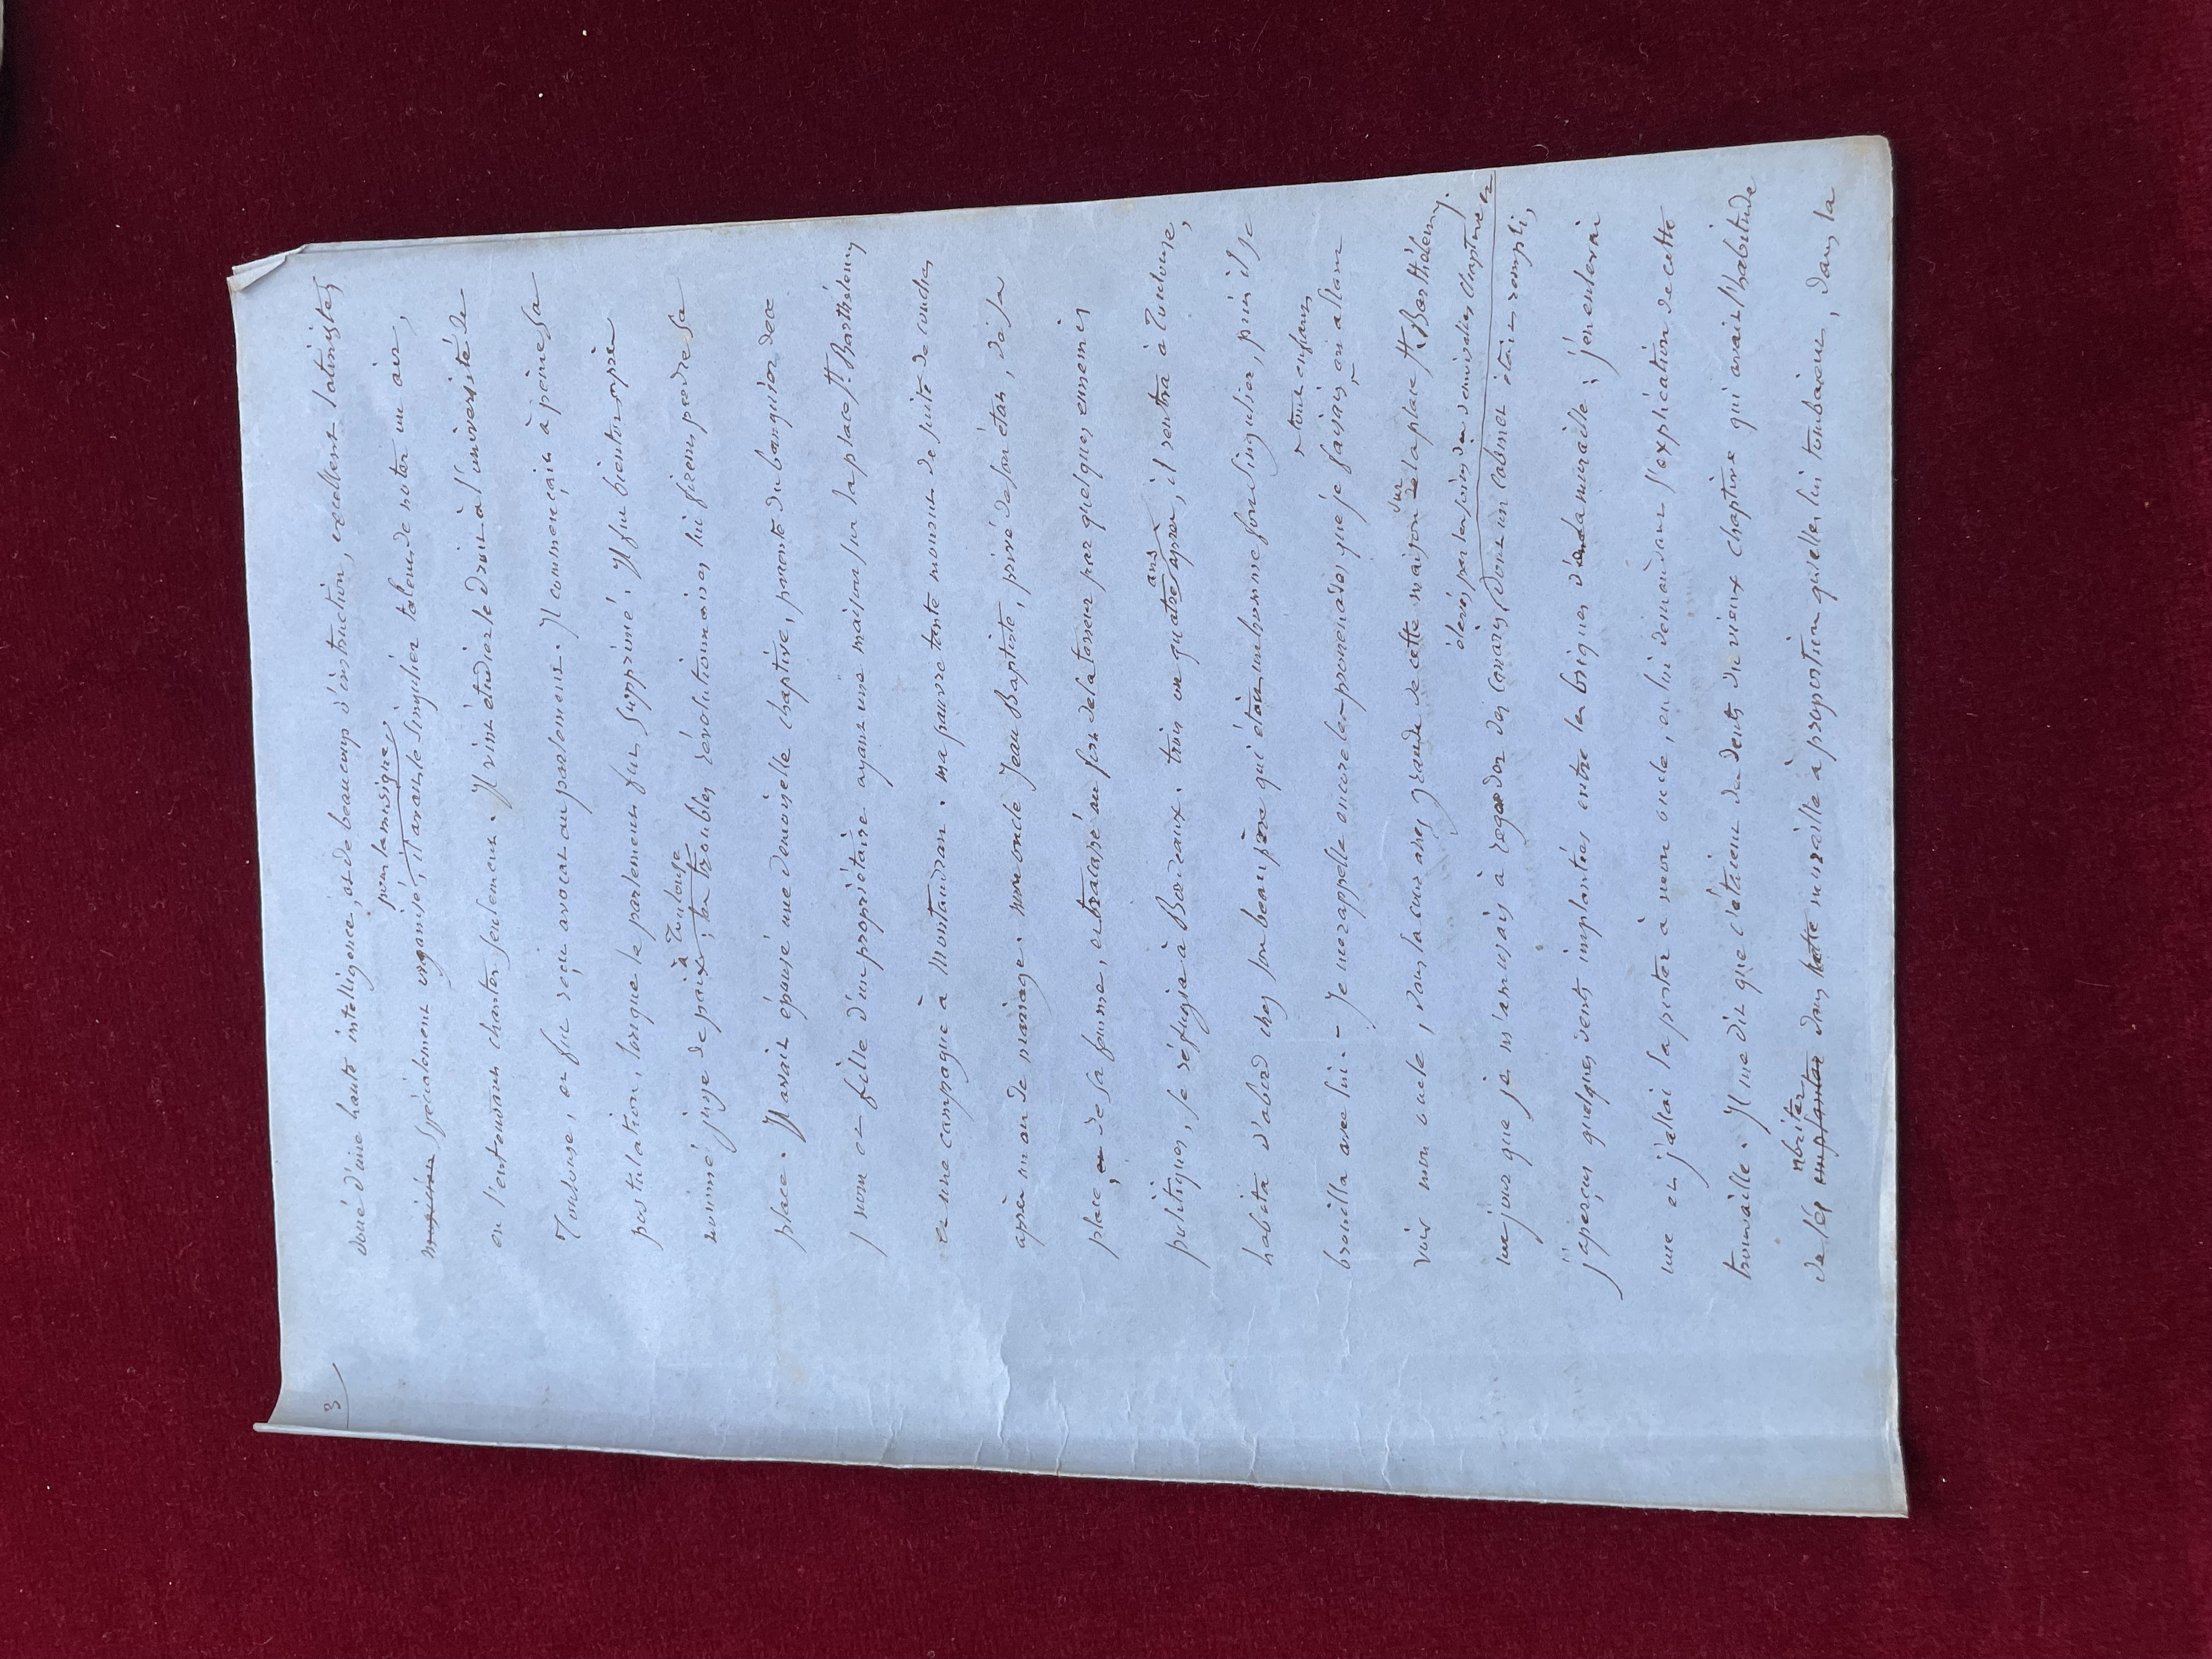 3
doué d'une haute intelligence, et de beaucoup d'instruction, excellent latiniste,
pour la musique,
musicien spécialement organisé, il avait le singulier talent de noter un air,
en l'entendant chanter seulement. Il vint étudier le droit à l'université de
Toulouse, et fut reçu avocat au parlement. Il commençait à peine sa
postulation, lorsque le parlement fut supprimé. Il fut bientôt après
à Toulouse
nommé juge de paix; les troubles révolutionnaires lui firent perdre sa
place. Il avait épousé une demoiselle Chaptive, parente du banquier de ce
nom et fille d'un propriétaire ayant une maison sur la place St. Barthélemy
et une campagne à Montaudran. ma pauvre tante mourut de suite de couches
après un an de mariage. mon oncle Jean Baptiste, privé de son état, de sa
place, et de sa femme, et tracassé au fort de la terreur par quelques ennemis
politiques, se réfugia à Bordeaux. trois ou quatre ans après, il rentra à Toulouse,
habita d'abord chez son beau père qui était un homme fort singulier, puis il se
tout enfant
brouilla avec lui. – Je me rappelle encore les promenades que je faisais en allant
sur
voir mon oncle, dans la cour assez grande de cette maison de la place St. Barthélemy.
élevés par les soins du demoiselles Chaptive et
un jour que je m'amusais à regarder des canaris, dont un cabinet était rempli,
j'aperçus quelques dents implantées entre les briques de la muraille; j'en enlevai
une et j'allai la porter à mon oncle, en lui demandant l'explication de cette
trouvaille. Il me dit que c'étaient des dents du vieux Chaptive qui avait l'habitude
abriter
de les implanter dans cette muraille à proportion qu'elles lui tombaient, dans la